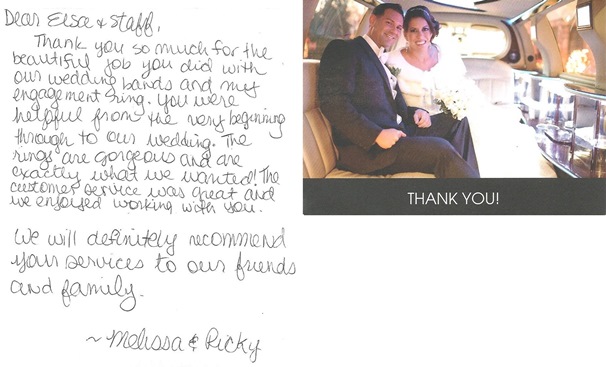 Dear Elsa & staff,
Thank you so much for the
beautiful job you did with
our wedding bands and my
engagement ring. You were
helpful from the very beginning
through to our wedding. The
rings are gorgeous and are
exactly what we wanted! The
customer service was great and
we enjoyed working with you.
We will definitely recommend
your services to our friends
and family.
~Melissa & Ricky
THANK YOU!